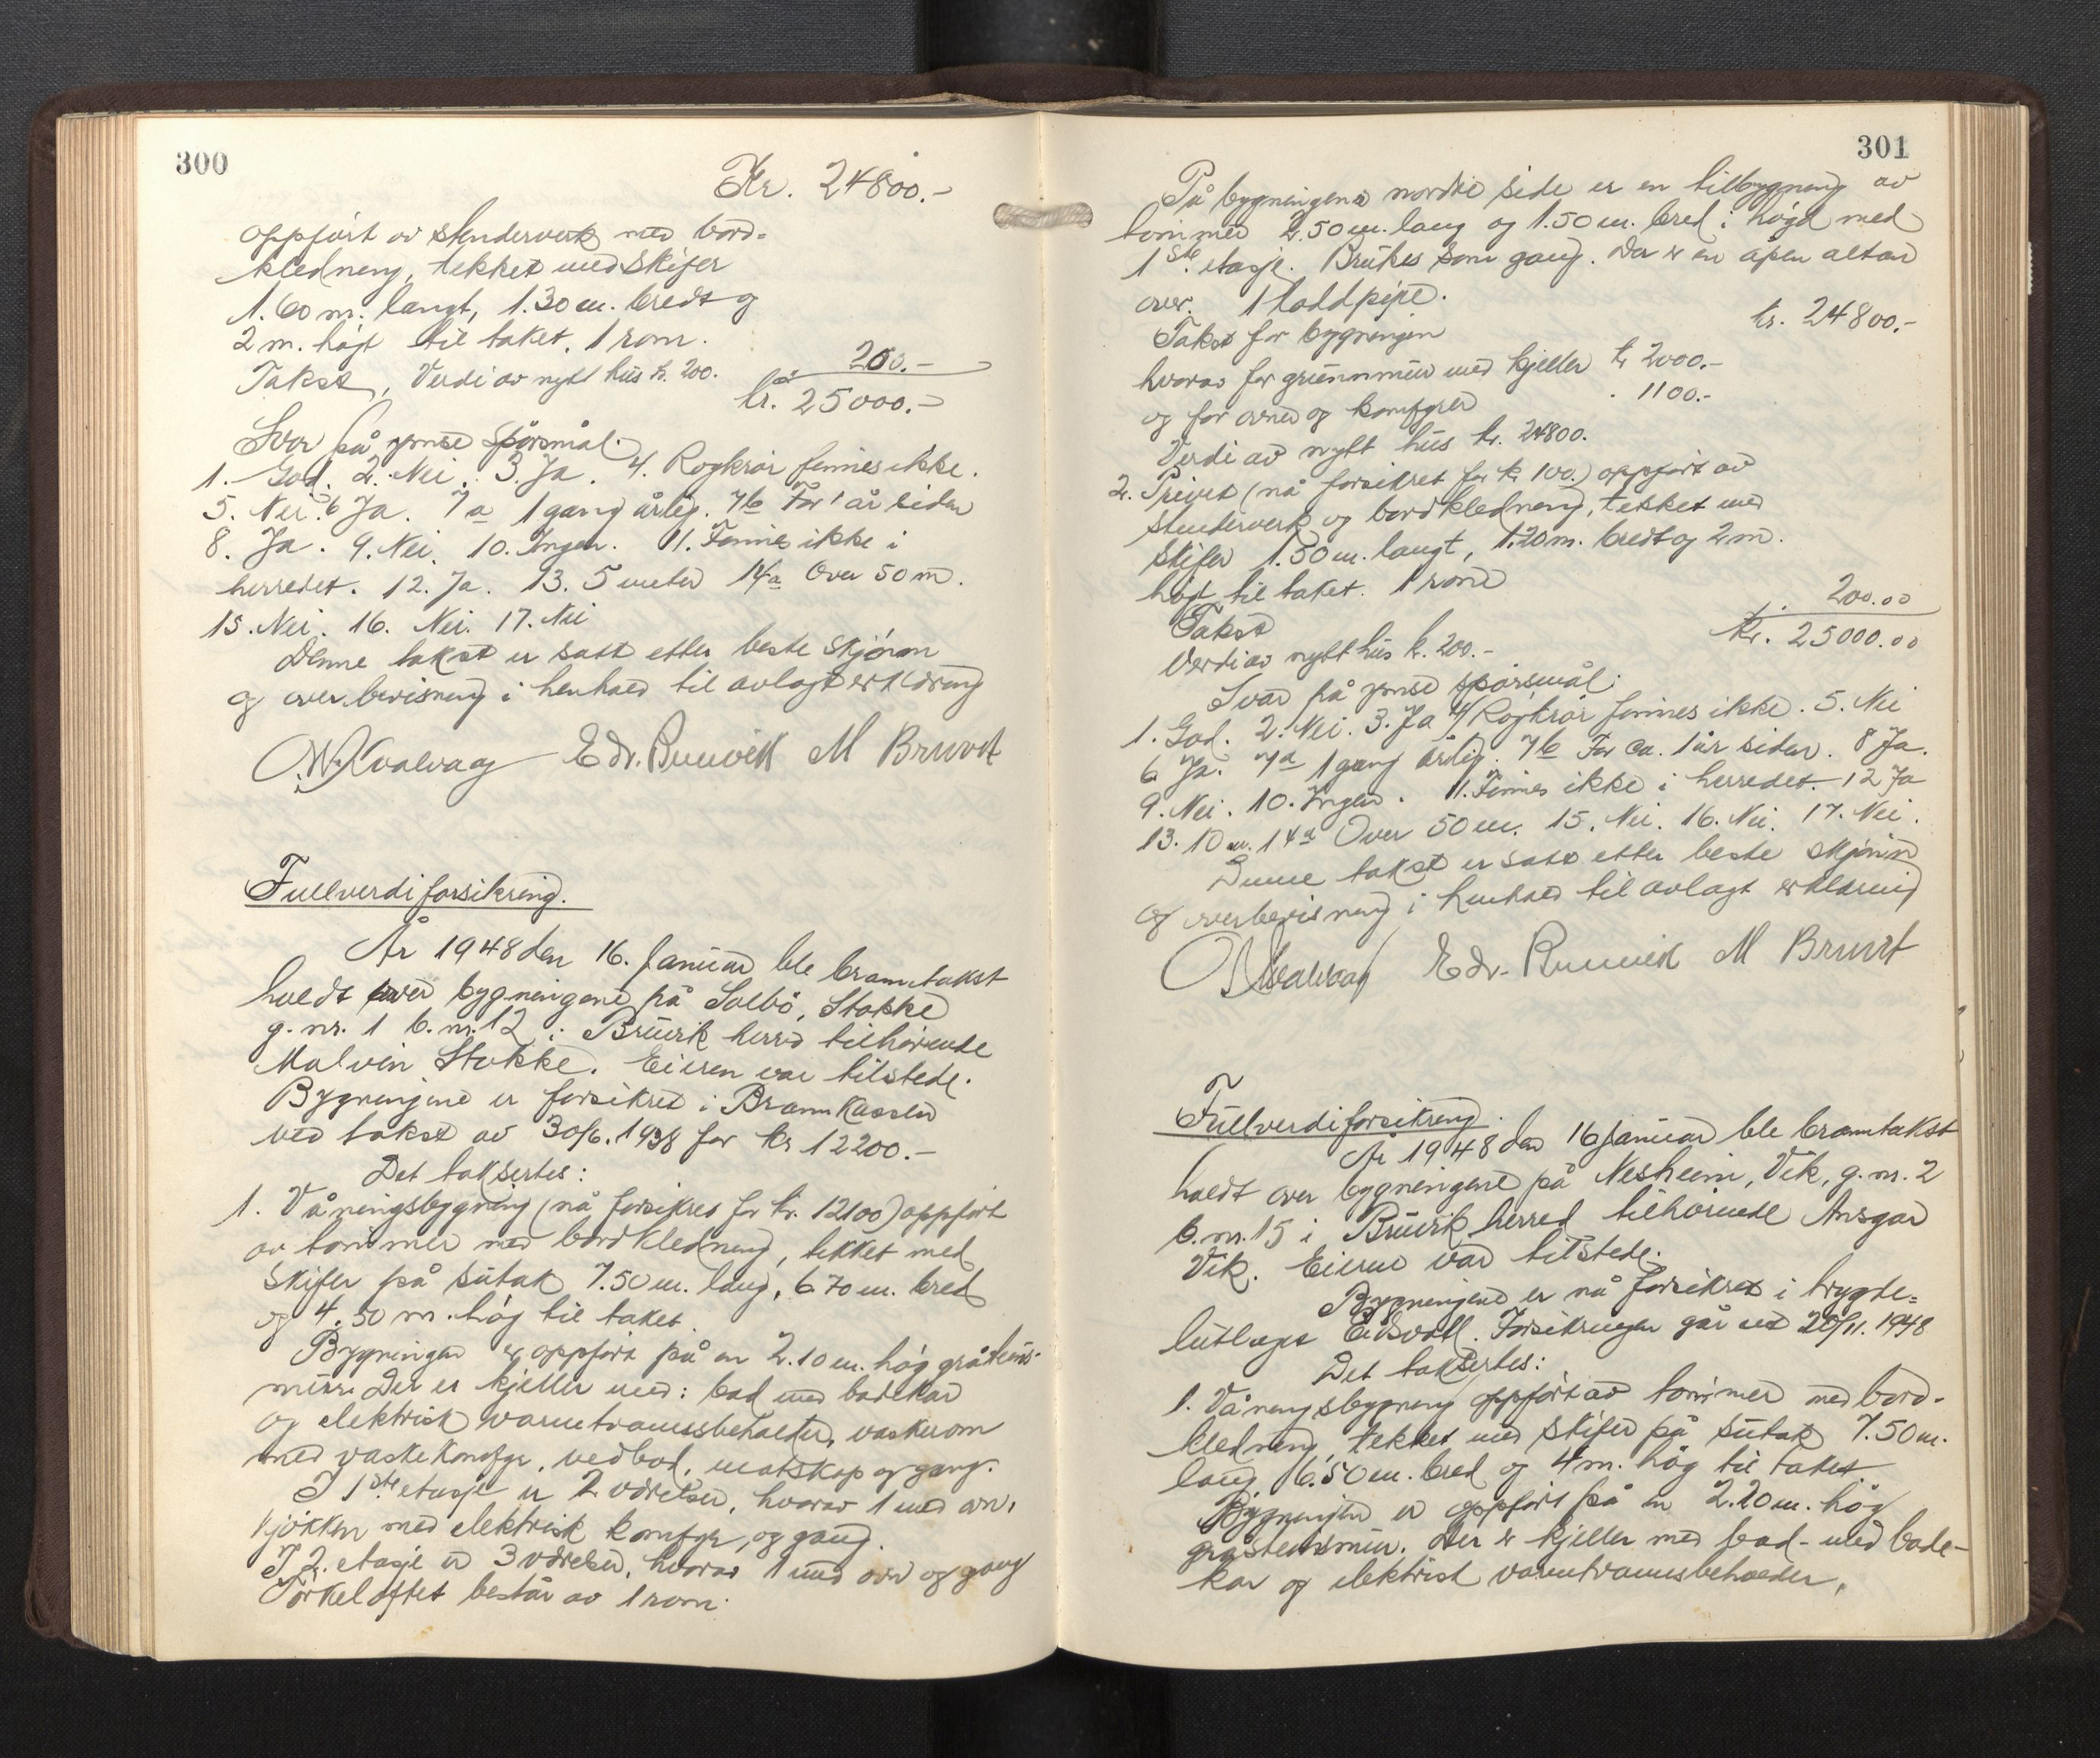 300
Kr. 24800.-
oppført av stenderverk med bord-
kledning, tekket med skifer
1.60 m. langt, 1.30 m. bredt og
2 m. høgt til taket. 1 rom.
Takst, Verdi av nytt hus kr. 200. 200.-
kr. 25000.-
Svar på ymse spørsmål.
1. God. 2. Nei. 3. Ja. 4. Røgkrør finnes ikke.
5. Nei. 6 Ja. 7a 1 gang årlig. 7b For 1 år siden
8. Ja. 9. Nei. 10. Ingen. 11. Finnes ikke i
herredet. 12. Ja. 13. 5 meter 14a Over 50 m.
15. Nei. 16. Nei. 17. Nei
Denne takst er satt etter beste skjønn
og overbevisning i henhold til avlagt erklæring
Kvalvaag Edv. Bruvik M Bruvik
Fullverdiforsikring.
År 1948 den 16. Januar ble branntakst
holdt over bygningene på Solbø, Stokke
g.nr. 1 b.nr. 12 i Bruvik herred tilhørende
Malvin Stokke. Eieren var tilstede.
Bygningene er forsikret i Brannkassen
ved takst av 30/6.1938 for kr 12200.-
Det taksertes:
1. Våningsbygning (nå forsikres for kr. 12100) oppført
av tømmer med bordkledning, tekket med
skifer på sutak 7.50 m. lang, 6.70 m. bred
og 4.50 m. høg til taket.
Bygningen er oppført på en 2.10 m. høg gråsteins-
mur. Der er kjeller med: bad med badekar
og elektrisk varmtvannsbeholder, vaskerom
med vaskekomfyr, vedbod, matskap og gang.
I 1ste etasje er 2 værelser, hvorav 1 med ovn,
kjøkken med elektrisk komfyr, og gang.
I 2. etasje er 3 værelser, hvorav 1 med ovn og gang
Tørkeloftet består av 1 rom.
301
På bygningens nordre side er en tilbygning av
tømmer 2.50 m. lang og 1.50 m. bred i høgd med
1ste. etasje. Brukes som gang. Der er en åpen altan
over. 1 loddpipe.
Takst for bygningen kr. 24800.-
hvorav for grunnmur med kjeller kr 2000.-
og for ovner og komfyrer 1100.-
Verdi av nytt hus kr. 24800.
2. Privet (nå forsikret for kr 100.) oppført av
stenderverk og bordkledning, tekket med
skifer 1.50 m. langt, 1.20 m. bredt og 2 m.
høgt til taket. 1 rom
Takst 200.00
Verdi av nytt hus kr. 200.- Kr. 25000.00
Svar på ymse spørsmål:
1. God. 2. Nei. 3. Ja 4 Røgkrør finnes ikke. 5. Nei
6 Ja. 7a 1 gang årlig. 7b For ca. 1 år siden. 8 Ja.
9. Nei. 10. Ingen. 11. Finnes ikke i herredet. 12 Ja
13. 10 m. 14a Over 50 m. 15. Nei. 16. Nei. 17. Nei.
Denne takst er satt etter beste skjønn
og overbevisning i henhold til avlagt erklæring
Kvalvaag Edv. Bruvik M Bruvik
Fullverdiforsikring.
År 1948 den 16 Januar ble branntakst
holdt over bygningene på Nesheim, Vik, g.nr. 2
b.nr. 15 i Bruvik herred tilhørende Ansgar
Vik. Eieren var tilstede.
Bygningene er nå forsikret i trygde-
lutlaget Eidsvoll. Forsikringen går ut 20/11.1948
Det taksertes:
1. Våningsbygning oppført av tømmer med bord-
kledning, tekket med skifer på sutak 7.50 m.
lang, 6.50 m. bred og 4 m. høg til taket.
Bygningen er oppført på en 2.20 m. høg
gråsteinsmur. Der er kjeller med bad- med bade-
kar og elektrisk varmtvannsbeholder,